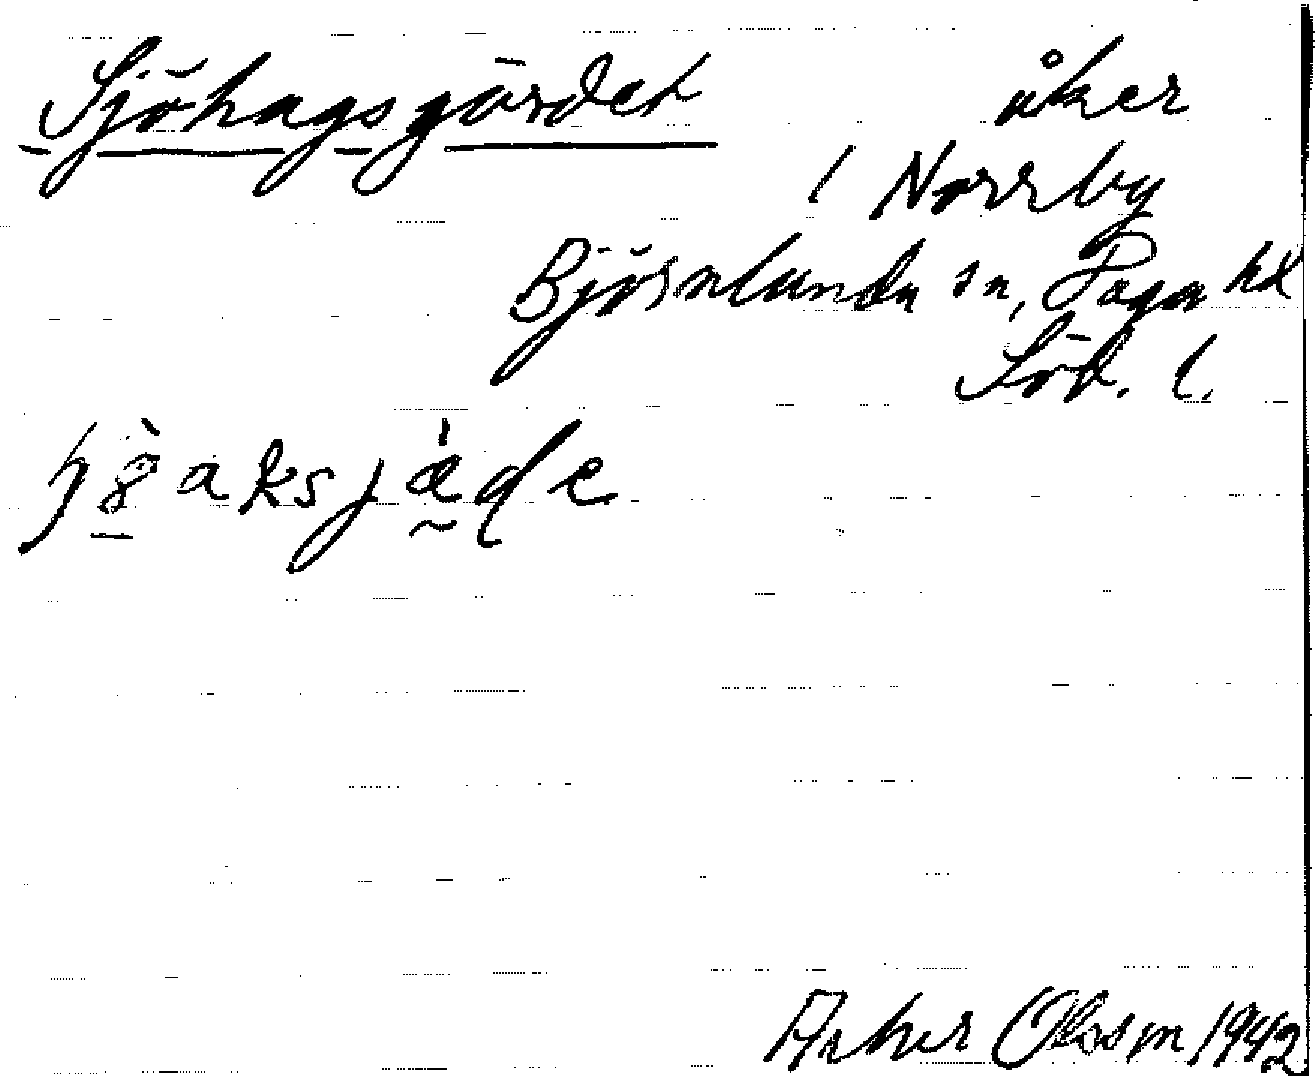 Sjöhagsgärdet åker
i Norrby
Björnlunda sn, Daga hd
Söd. l.
Arthur Olsson 1942